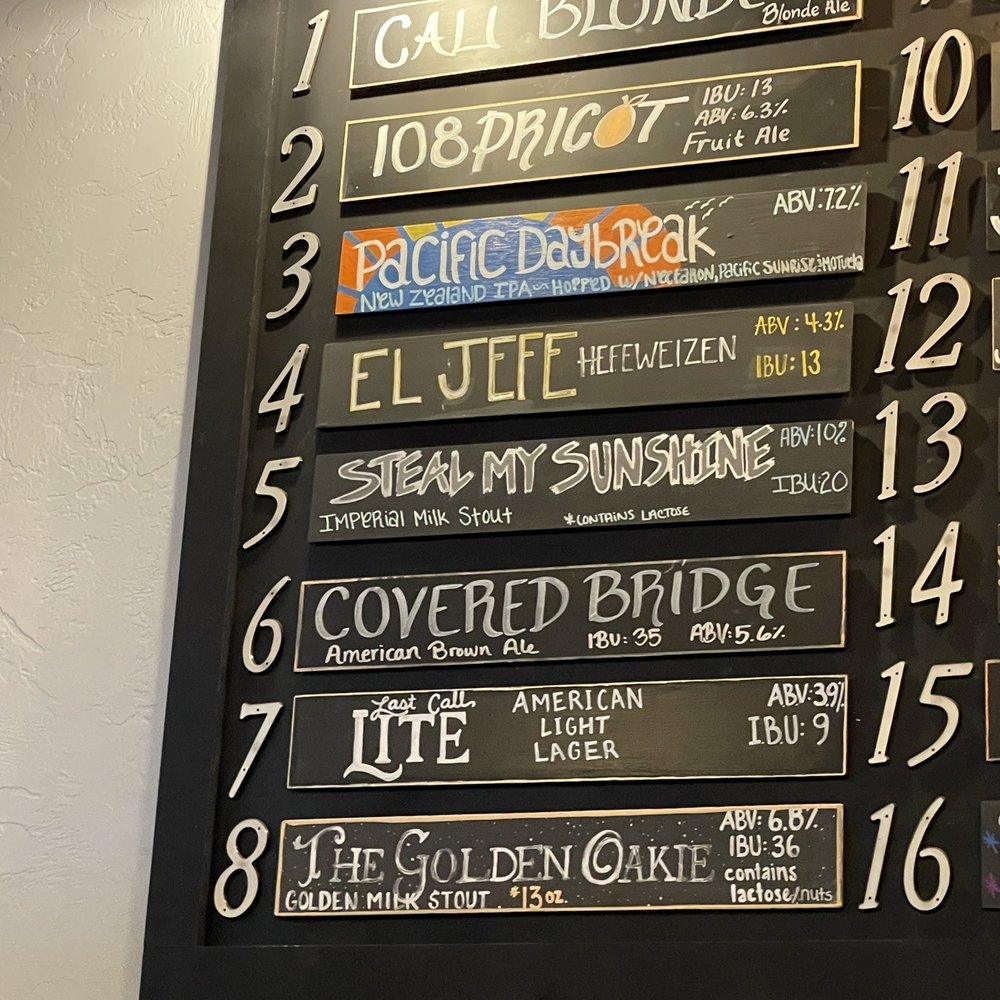 1
CALI BLONDE
Blonde Ale
2
108PRICOT
IBU: 13
ABV: 6.3%
Fruit Ale
3
PACIFIC DAYBREAK
ABV: 7.2%
NEW ZEALAND IPA~HOPPED W/NECTARON, PACIFIC SUNRISE & MOTUEKA
4
EL JEFE HEFEWEIZEN
ABV: 4.3%
IBU: 13
5
STEAL MY SUNSHINE
ABV: 10%
IBU: 20
IMPERIAL MILK STOUT
*CONTAINS LACTOSE
6
COVERED BRIDGE
American Brown Ale IBU: 35 ABV: 5.6%
7
Last Call
LITE
AMERICAN
LIGHT
LAGER
ABV: 3.9%
I.B.U: 9
8
THE GOLDEN OAKIE
GOLDEN MILK STOUT . *13 OZ.
ABV: 6.8%
IBU: 36
contains
lactose/nuts
10
11
12
13
14
15
16